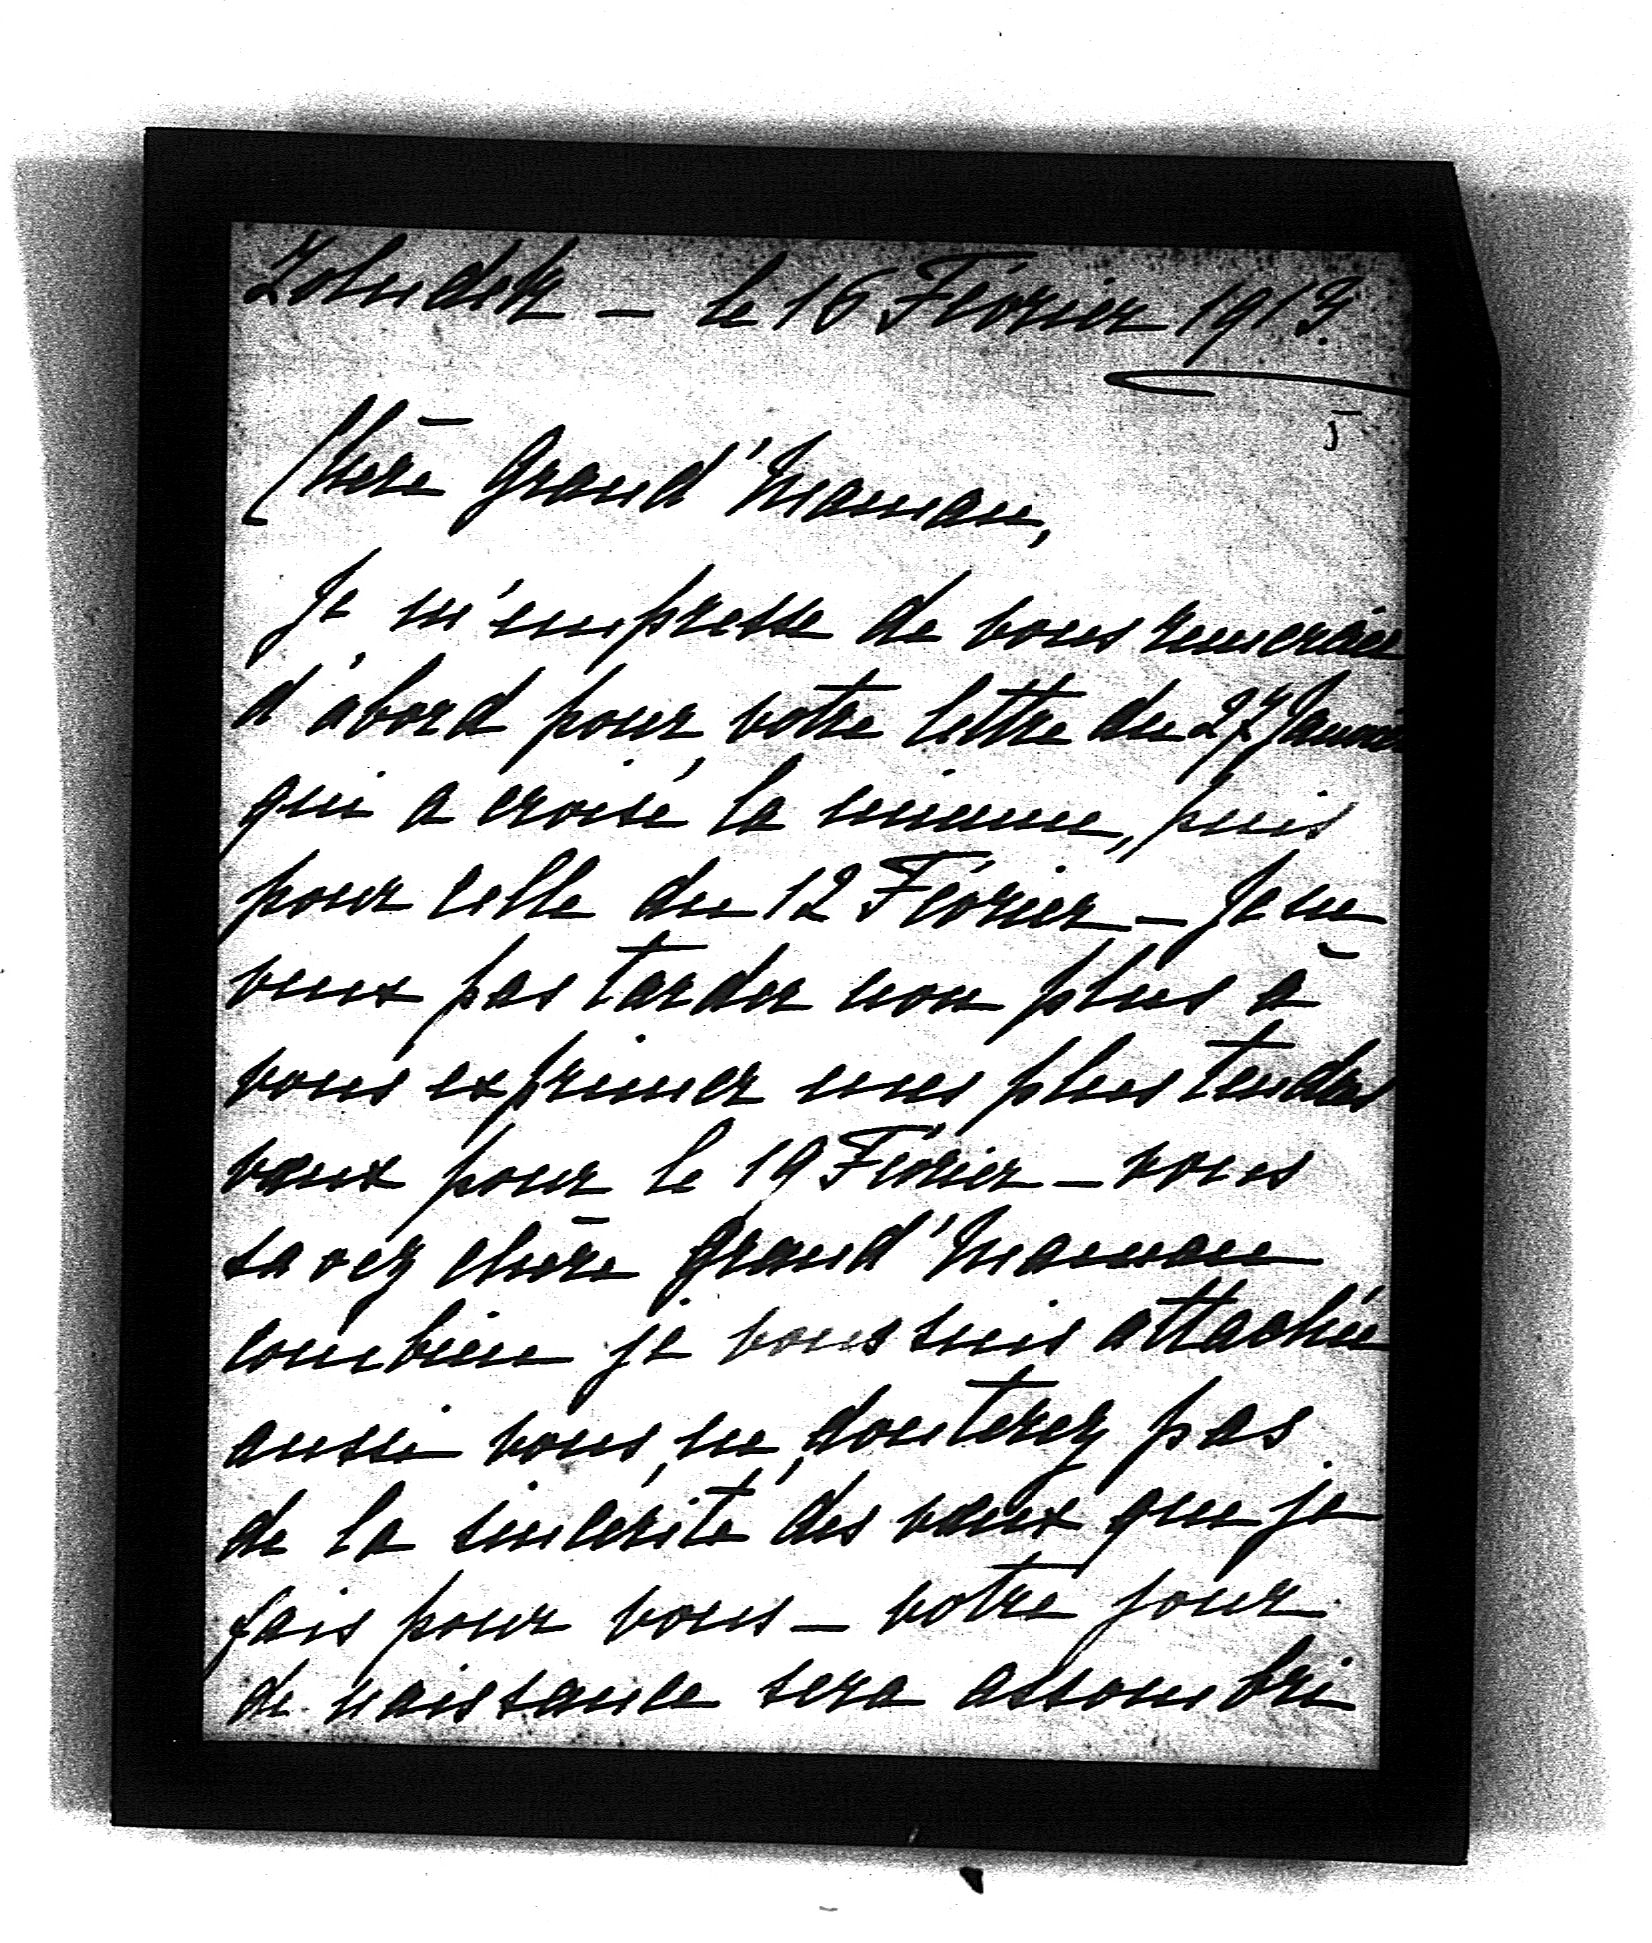 Zoludek – le 16 Février 1913.
5
Chère Grand'Maman,
Je m'empresse de vous remercier
d'abord pour votre lettre du 27 Janvier
qui a croisé la mienne, puis
pour celle du 12 Février – Je ne
veux pas tarder non plus à
vous exprimer mes plus tendres
vœux pour le 19 Février – vous
savez chère Grand'Maman
combien je vous suis attachée
aussi vous ne douterez pas
de la sincérité des vœux que je
fais pour vous – votre jour
de naissance sera assombri